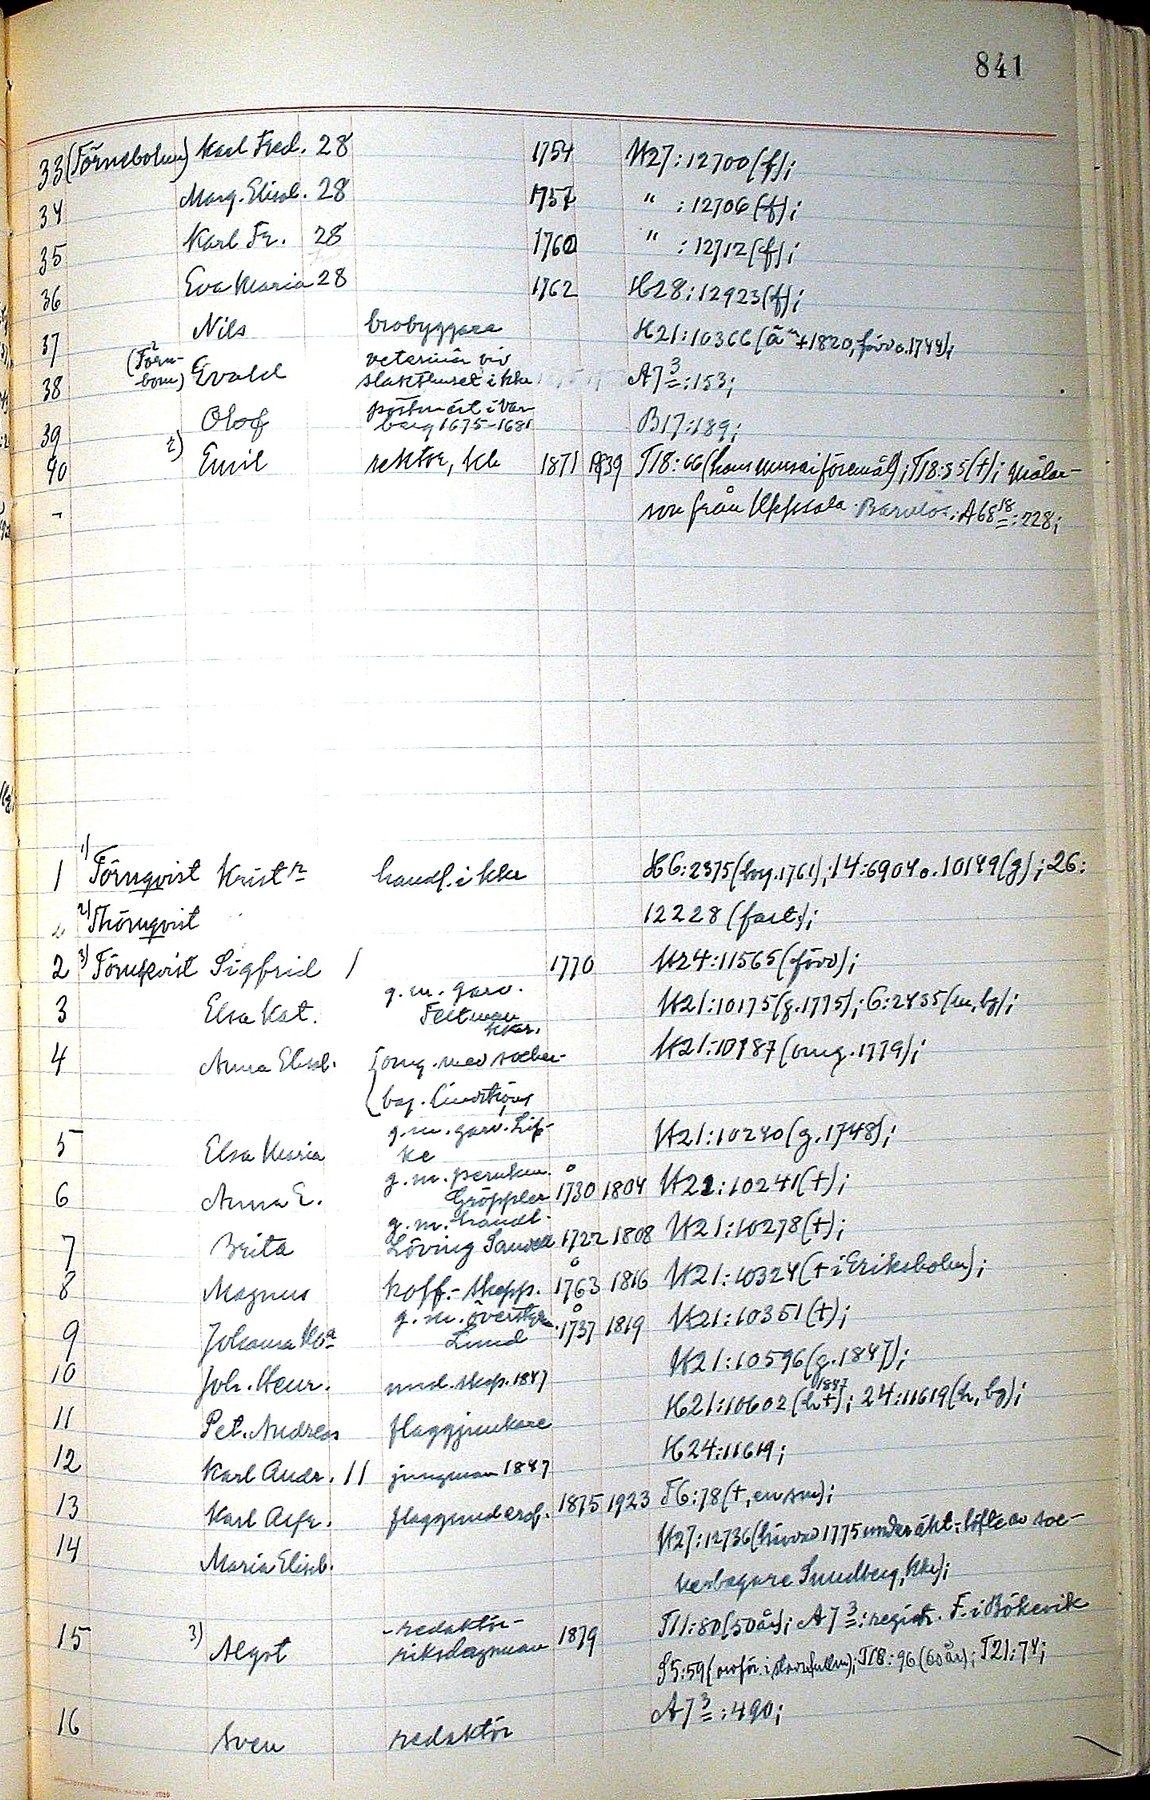 841
33 (Törnebohm) Karl Fred. 28 1754 H27:12700(f);
34 Marg. Elisab. 28 1757 " :12706(f);
35 Karl Fr. 28 1760 " :12712(f);
36 Eva Maria 28 1762 H28:12923(f);
37 Nils brobyggare H21:10366(
38 (Törn-
bom) Evald veterinär vid
slakthuset i Kkr A7 3:153;
39 Olof postmäst. i Var-
berg 1675-1681 B17:189;
40 2) Emil rektor, Kk 1871 1939 T18:66(hans museiföremål); T18:35(+); Målar-
son från Uppsala. Barnlös. A68 18:228;
1 1) Törnqvist Krist:r handl. i Kkr H6:2375(borg.1761); 14:6904 o. 10149(g); 26:
2) Thörnqvist 12228(fast.);
2 3) Törnkvist Sigfrid 1 1770 H24:11565(förd);
3 Elsa Kat. g.m. garv.
Feltman
Kkr. H21:10175(g.1775); 6:2435(m, bg);
4 Anna Elisab. omg. med socker-
bag. Lindström H21:10187(omg.1779);
5 Elsa Maria g.m. garv. Lip-
ke H21:10240(g.1748);
6 Anna E. g.m. perukm.
Gröppler 1730 1804 H21:10241(+);
7 Brita g.m. handl.
Löving Sandell 1722 1808 H21:10278(+);
8 Magnus koff.-skepp. 1763 1816 H21:10324(+ i Eriksholm);
9 Johanna M:a g.m.
Lund 1737 1819 H21:10351(+);
10 Joh. Henr. und.skep. 1847 H21:10596(g.1847);
11 Pet. Andreas flaggjunkare H21:10602(h+ 1887); 24:11619(h, bg);
12 Karl Andr. 11 jungman 1847 H24:11619;
13 Karl Alfr. flaggunderof. 1875 1923 T6:78(+, en son);
14 Maria Elisab. H27:12736(hävdad 1775 under äkt.löfte av soc-
kerbagare Sundberg, Kkr);
15 3) Algot redaktör-
riksdagsman 1879 T11:80(50 år); A7 3: registr. F. i Bökevik
S5:59( T18:96(60 år); T21:74;
16 Sven redaktör A7 3:490;